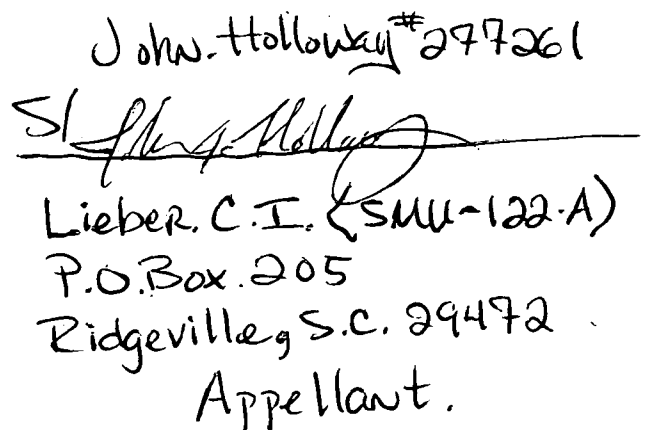 John. Holloway #277261
S/ John G. Holloway
Lieber. C.I. {SMU-122-A)
P.O.Box.205
Ridgeville, S.C. 29472
Appellant.